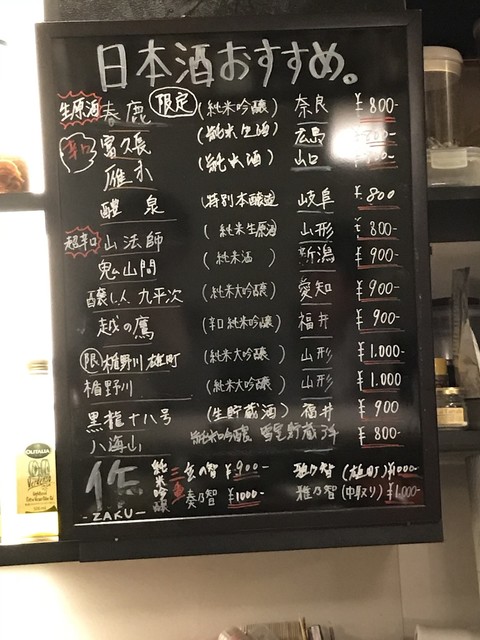 日本酒おすすめ。
生原酒 春鹿 限定 (純米吟醸) 奈良 ¥800-
辛口 富久長 (純米酒) 広島
雁木 (純米酒) 山口
醴泉 (特別本醸造) 岐阜 ¥800
超辛口 山法師 (純米生原酒) 山形 ¥800-
鬼山間 (純米酒) 新潟 ¥900-
醸し人 九平次 (純米大吟醸) 愛知 ¥900-
越の鷹 (辛口純米吟醸) 福井 ¥900-
限 楯野川 雄町 (純米大吟醸) 山形 ¥1.000-
楯野川 (純米大吟醸) 山形 ¥1.000
黒龍 十八号 (生貯蔵酒) 福井 ¥900
八海山 純米吟醸 雪室貯蔵3年 ¥800-
作 -ZAKU- 純米吟醸 三重 玄の智 ¥900- 雅乃智 (雄町) ¥1000-
奏乃智 ¥1000- 雅乃智 (中取り) ¥1,000-
OLITALIA